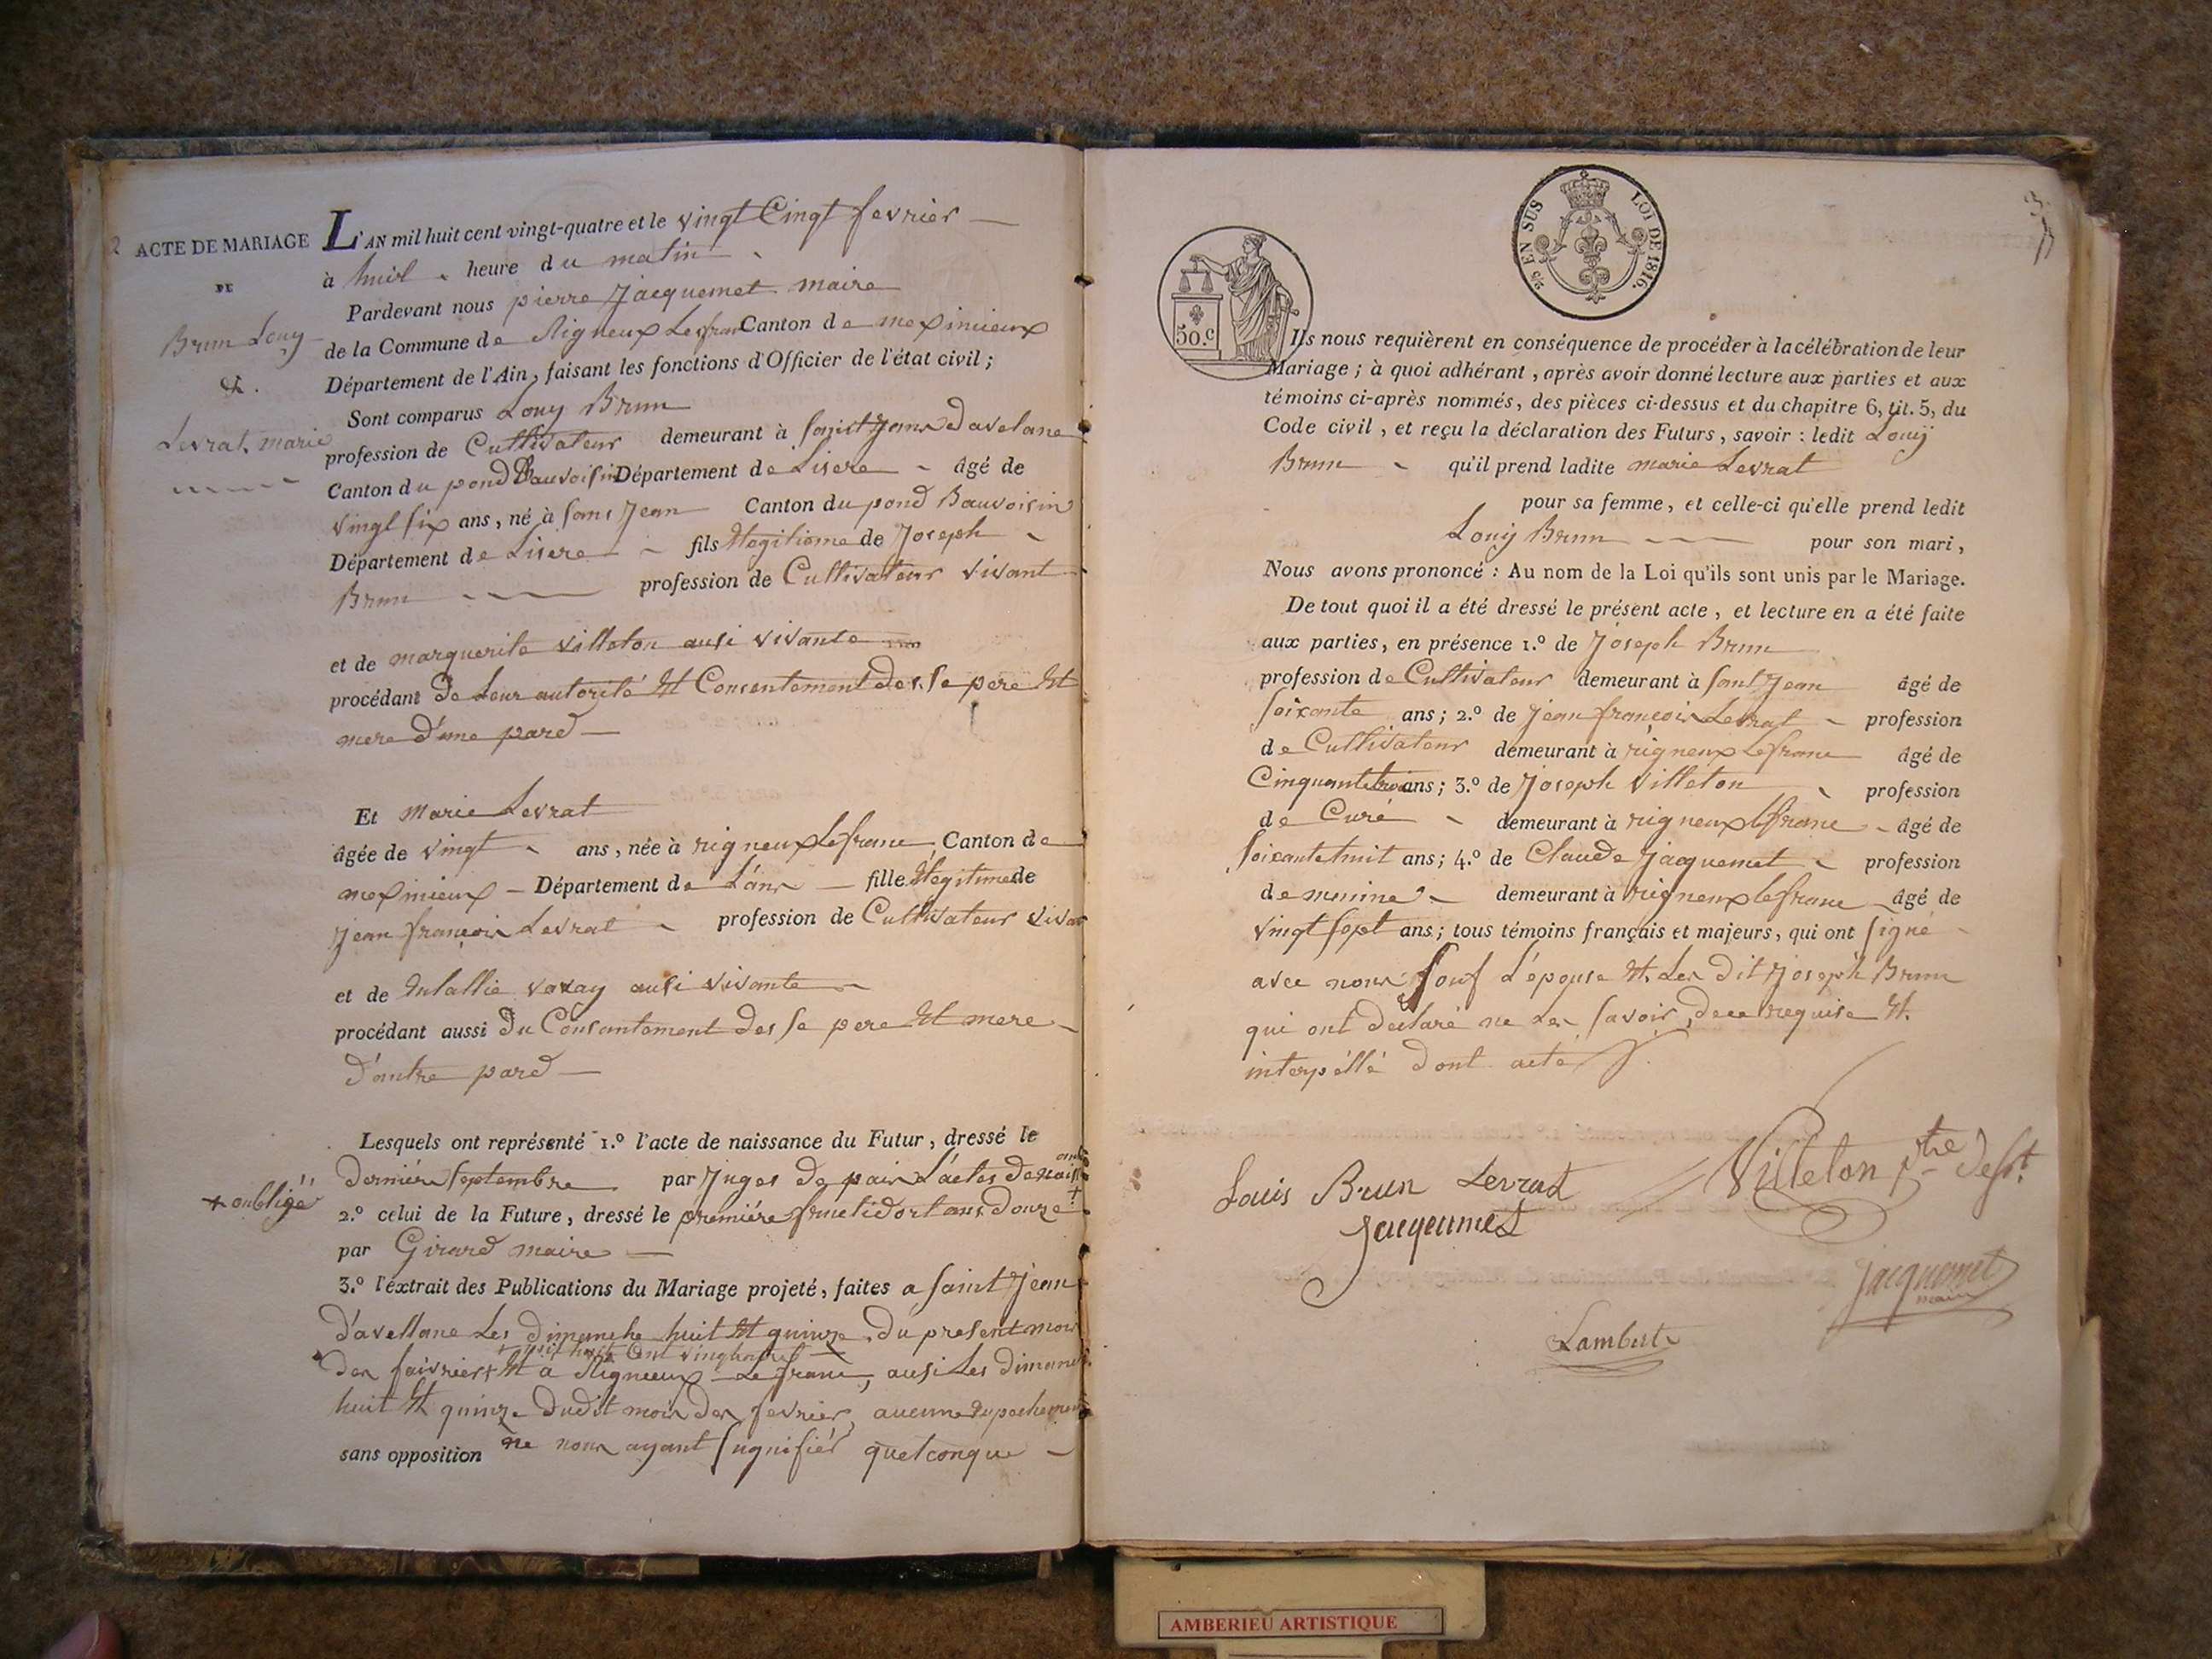 2 ACTE DE MARIAGE
DE
Brun Louy
&.
Levrat marie
L'AN mil huit cent vingt-quatre et le vingt Cingt fevrier
à huit heure du matin
Pardevant nous pierre Jacquemet maire
de la Commune de Rigneux Lefranc Canton de meximieux
Département de l'Ain, faisant les fonctions d'Officier de l'état civil;
Sont comparus Louy Brun
profession de Cultivateur demeurant à Davelane
Canton du pond Bauvoisin Département de Lisere âgé de
vingt six ans, né à Jean Canton du pond Bauvoisin
Département de Lisere fils légitime de Joseph
Brun profession de Cultivateur vivant
et de marguerite villeton ausi vivante
procédant de Leur autorité Et Consentement des. se pere Et
mere d'une pard
Et Marie Levrat
âgée de vingt ans, née à rigneux Lefranc Canton de
meximieux Département de L'ain fille légitime de
jean francois Levrat profession de Cultivateur
et de vivante
procédant aussi du Consantement des se pere Et mere
d'autre pard
Lesquels ont représenté 1.º l'acte de naissance du Futur, dressé le
derniére septembre par Juges de
+ oubligé
2.º celui de la Future, dressé le premiére fructidort ans douze +
par Girard maire
3.º l'extrait des Publications du Mariage projeté, faites a saint Jean
d'avellane Les dimanche huit Et quinze du present mois
huit Cent
Et a Rigneux Lefranc, ausi Les
huit Et quinze dudit mois de fevrier, aucune
sans opposition ne nous ayant sugnifiér quelconque
50.c
2/5 EN SUS LOI DE 1816.
Ils nous requièrent en conséquence de procéder à la célébration de leur
Mariage; à quoi adhérant, après avoir donné lecture aux parties et aux
témoins ci-après nommés, des pièces ci-dessus et du chapitre 6, tit. 5, du
Code civil, et reçu la déclaration des Futurs, savoir: ledit Louy
Brun qu'il prend ladite marie Levrat
pour sa femme, et celle-ci qu'elle prend ledit
Louy Brun pour son mari,
Nous avons prononcé: Au nom de la Loi qu'ils sont unis par le Mariage.
De tout quoi il a été dressé le présent acte, et lecture en a été faite
aux parties, en présence 1.º de Joseph Brun
profession de Cultivateur demeurant à sant Jean âgé de
soixante ans; 2.º de jean francois Levrat profession
de Cultivateur demeurant à rigneux Lefranc âgé de
Cinquante ans; 3.º de Joseph villeton profession
de Curé demeurant à rigneux lefranc âgé de
soixante huit ans; 4.º de Claude Jacquemet profession
de demeurant à rigneux lefranc âgé de
vingt sept ans; tous témoins français et majeurs, qui ont signé
avec nous souf L'epouse Et Les dit Joseph Brun
qui ont déclaré ne Les savoir, de ce requise Et.
interpéllé dont acté
Louis Brun Levrat Villeton ptre
Jacquemet
Jacquemet
maire
Lambert
AMBERIEU ARTISTIQUE